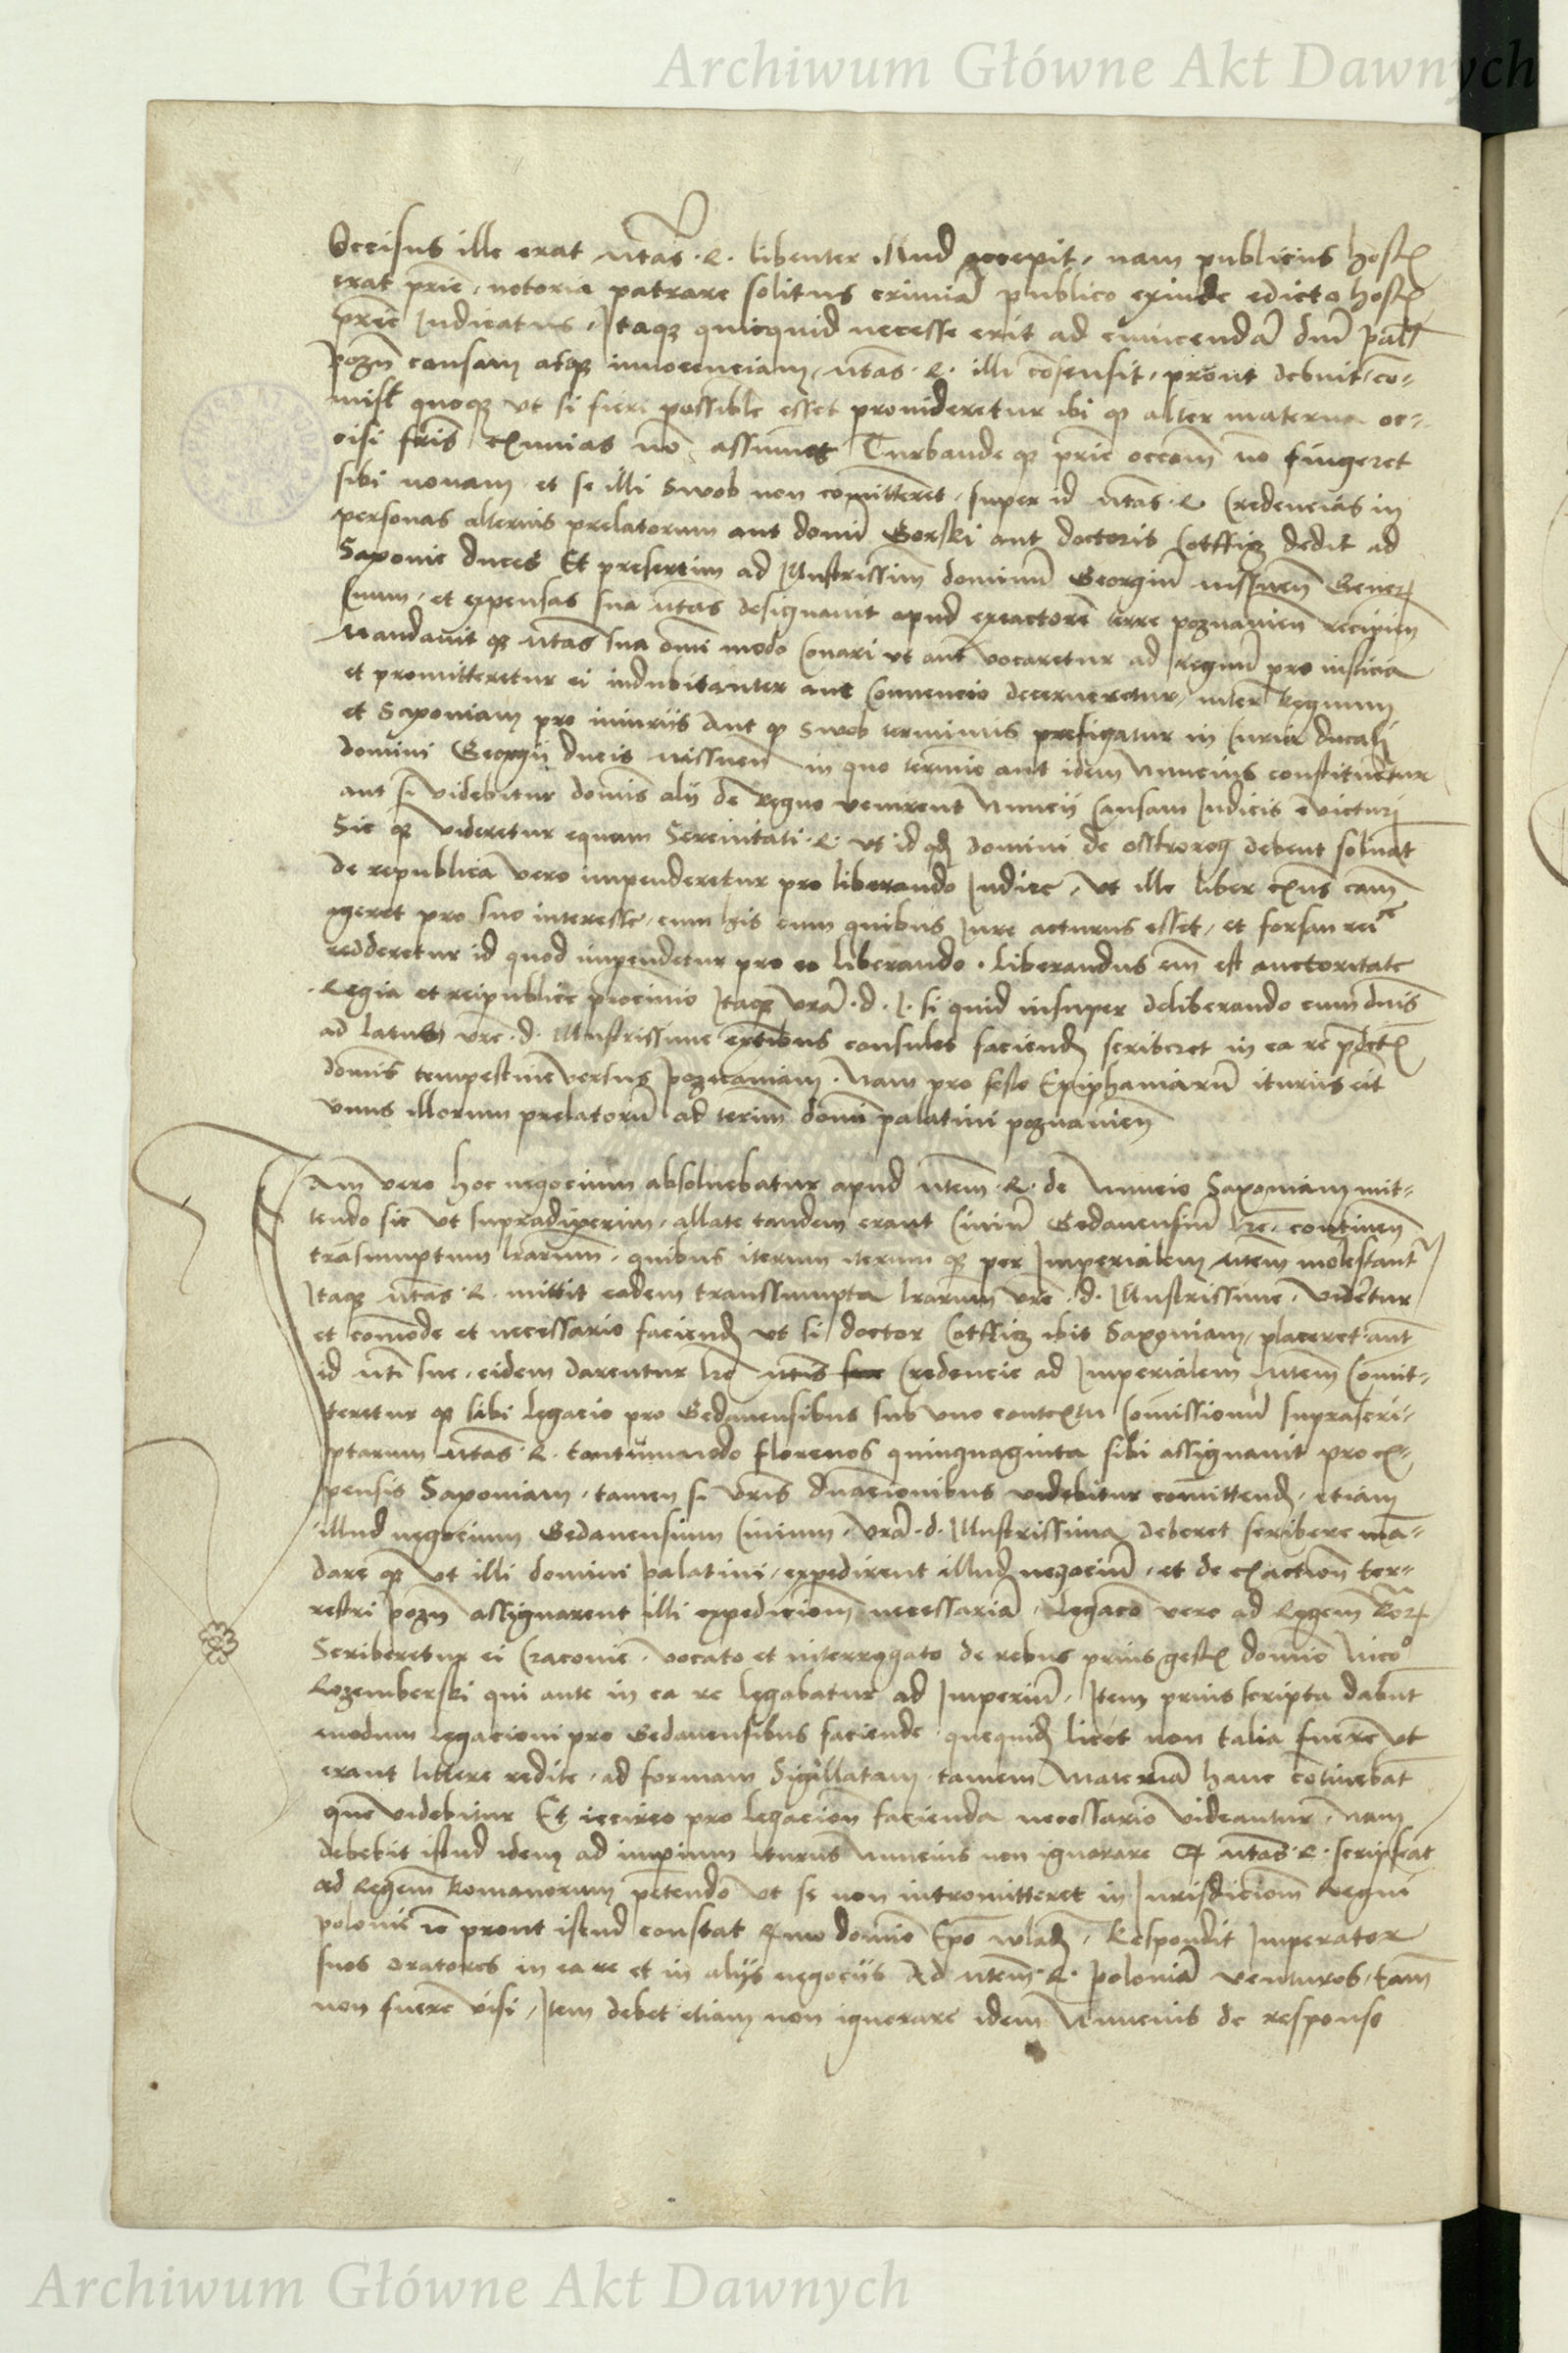 Archiwum Główne Akt Dawnych
Occisus ille erat mtas. R. libenter illud accepit, nam publicus hostis
erat prie, notoria patrare solitus crimina publico exinde edicto hostis
prie Judicatus, Itaqz quicquid necesse erit ad euincendā dni pal
pozn causam atqz innocenciam, mtas. R. illi cōsensit, prout debuit, co-
misit quoqz vt si fieri possibile esset prouideretur ibi qz alter materna oc-
cisi fris exuuias nō assumet Turbande qz prie occom nō fingeret
sibi nouam et se illi Swob non comitteret, super id mtas. R Credencias in
personas alterius prelatorum aut domi Gorski aut doctoris Cottffiz dedit ad
Saxonie duces Et presertim ad Illustrissim dominū Georgiū missnen Gener
suum, et expensas sua mtas designauit apud exactorē terre poznanien recipien
Mandauit qz mtas sua omi modo Conari vt aut vocaretur ad regnū pro iusticia
et promitteretur ei indubitanter aut Conuencio decerneretur, inter Regnum
et Saxoniam pro iniuriis Aut qz Swob terminus prefigatur in Curia ducali
domini Georgii ducis missnen in quo termīo aut idem Nuncius constitueretur
aut si videbitur domis alij de Regno venirent Nuncij Causam Judicis euicturi
Sic qz videretur equam Serenitati. R. vt id qd domini de osstrorog debent soluāt
de republica vero impenderetur pro liberando Judice, vt ille liber exūs cam
ageret pro suo interesse, cum his cum quibus Jure acturus esset, et forsan rei
redderetur id quod impendetur pro eo liberando. Liberandus em est auctoritate
Regia et reipublice precinio Itaqz vra. d. J. si quid insuper deliberando cum dnis
ad latus vre. d. Illustrissime extibus consules faciend scriberet in ea re pdctis
domis tempestiue versus pozecaniam. Nam pro festo Epiphaniarū iturus eit
vnus illorum prelatorū ad termī domi palatini poznanien
Am vero hoc negocium absoluebatur apud mtem. R. de Nuncio Saxoniam mit-
tendo sic vt supradixerim, allate tandem erant Ciuiū Gedanensiū lre, continen
trāsumptum lrarum, quibus iterum iterum qz per Imperialem mtem molestant
Itaqz mtas. R. mittit eadem transsumpta lrarum vre. d. Illustrissime, videtur
et comode et necessario faciend vt si doctor Cottffiz ibit Saxoniam, placeret aut
id mti sue, eidem darentur lre mtis Credencie ad Imperialem mtem Comit-
teretur qz sibi legacio pro Gedanensibus sub vno contextu Comissionū suprascri-
ptarum mtas. R. tantummodo florenos quinquaginta sibi assignauit pro ex-
pensis Saxoniam, tamen si vris dnacionibus videbitur comittend, etiam
illud negocium Gedanensium Ciuium, vra. d. Illustrissima deberet scribere mā-
dare qz vt illi domini palatini, expedirent illud negociū, et de exaction ter-
restri pozn assignarent illi expedicionem necessariā, legacō vero ad Regem Ror
Scriberetur ei Cracouie, vocato et interrogato de rebus prius gestis domīo Nico
Rozemberski qui ante in ea re legabatur ad Imperiū, Item prius scripta dabūt
modum legacioni pro Gedanensibus faciende quequid licet non talia fuere vt
erant littere reddite, ad formam Sigillatam tamem materiā hanc cotinebāt
que videbitur Et iccirco pro legacion facienda necessario videantur, nam
debebit istud idem ad impium iturus Nuncius non ignorare qz mtas. R. scripserat
ad Regem Romanorum petendo vt se non intromitteret in Jurisdicionē Regni
polonie prout istud constat domīo Epo wlad, Respondit Imperator
suos oratores in ea re et in alijs negocijs Ad mtem. R. poloniā venturos, tam
non fuere visi, Item debet etiam non ignorare idem Nuncius de responso
Archiwum Główne Akt Dawnych